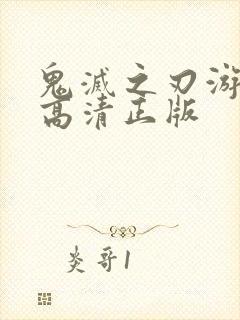 鬼滅之刃游
高清正版
炎哥1